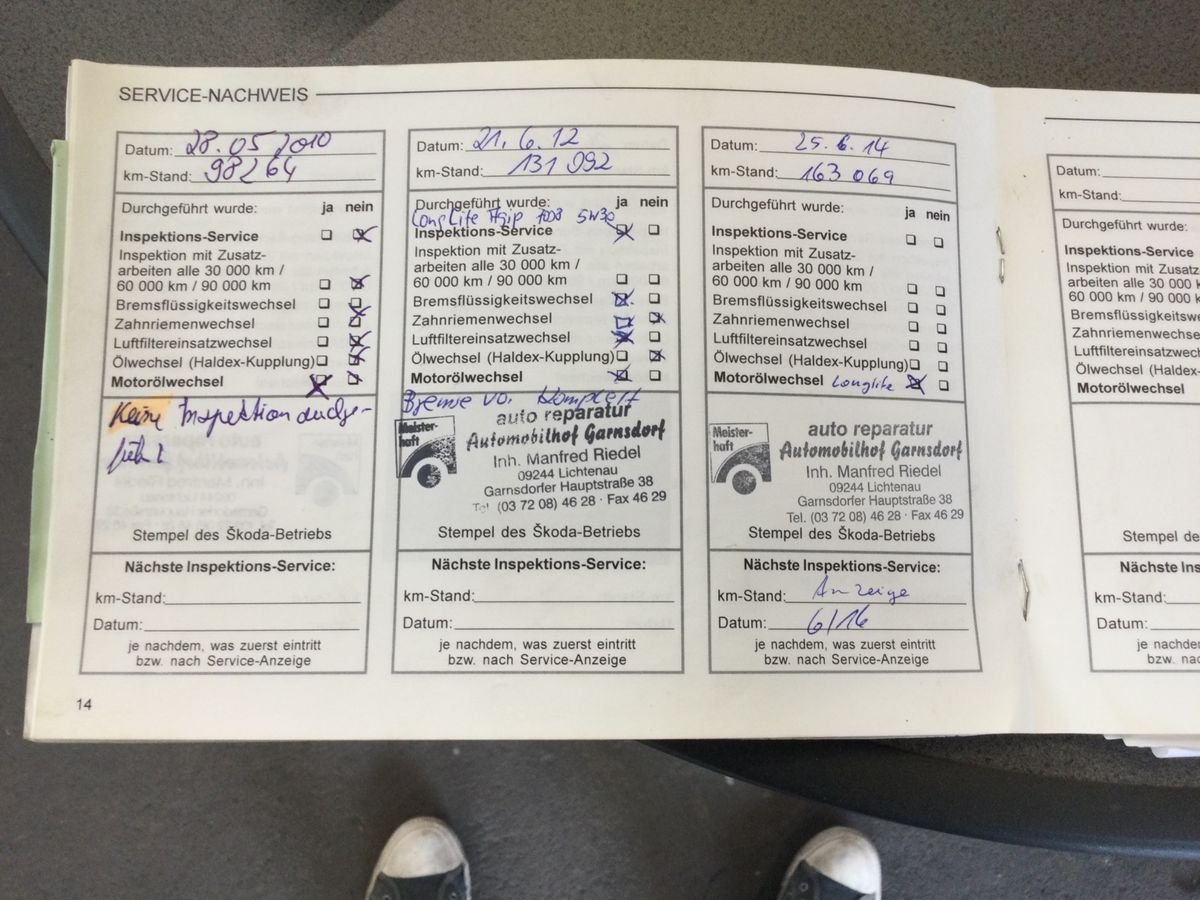 SERVICE-NACHWEIS
Datum: 28.05 2010
km-Stand: 98264
Durchgeführt wurde: ja nein
Inspektions-Service
Inspektion mit Zusatz-
arbeiten alle 30 000 km /
60 000 km / 90 000 km
Bremsflüssigkeitswechsel
Zahnriemenwechsel
Luftfiltereinsatzwechsel
Ölwechsel (Haldex-Kupplung)
Motorölwechsel
Keine Inspektion
Stempel des Škoda-Betriebs
Nächste Inspektions-Service:
km-Stand:
Datum:
je nachdem, was zuerst eintritt
bzw. nach Service-Anzeige
14
Datum: 21.6.12
km-Stand: 131 092
Durchgeführt wurde: ja nein
Longlife Agip 5W30
Inspektions-Service
Inspektion mit Zusatz-
arbeiten alle 30 000 km /
60 000 km / 90 000 km
Bremsflüssigkeitswechsel
Zahnriemenwechsel
Luftfiltereinsatzwechsel
Ölwechsel (Haldex-Kupplung)
Motorölwechsel
Bremse vo. komplett
Meister-
haft
auto reparatur
Automobilhof Garnsdorf
Inh. Manfred Riedel
09244 Lichtenau
Garnsdorfer Hauptstraße 38
Tel. (03 72 08) 46 28 · Fax 46 29
Stempel des Škoda-Betriebs
Nächste Inspektions-Service:
km-Stand:
Datum:
je nachdem, was zuerst eintritt
bzw. nach Service-Anzeige
Datum: 25.6.14
km-Stand: 163 069
Durchgeführt wurde: ja nein
Inspektions-Service
Inspektion mit Zusatz-
arbeiten alle 30 000 km /
60 000 km / 90 000 km
Bremsflüssigkeitswechsel
Zahnriemenwechsel
Luftfiltereinsatzwechsel
Ölwechsel (Haldex-Kupplung)
Motorölwechsel Longlife
Meister-
haft
auto reparatur
Automobilhof Garnsdorf
Inh. Manfred Riedel
09244 Lichtenau
Garnsdorfer Hauptstraße 38
Tel. (03 72 08) 46 28 · Fax 46 29
Stempel des Škoda-Betriebs
Nächste Inspektions-Service:
km-Stand: Anzeige
Datum: 6/16
je nachdem, was zuerst eintritt
bzw. nach Service-Anzeige
Datum:
km-Stand:
Durchgeführt wurde:
Inspektions-Service
Inspektion mit Zusatz
arbeiten alle 30 000 k
60 000 km / 90 000 k
Bremsflüssigkeitswe
Zahnriemenwechse
Luftfiltereinsatzwec
Ölwechsel (Haldex-K
Motorölwechsel
Stempel de
Nächste Inspekti
km-Stand:
Datum:
je nachde
bzw. na